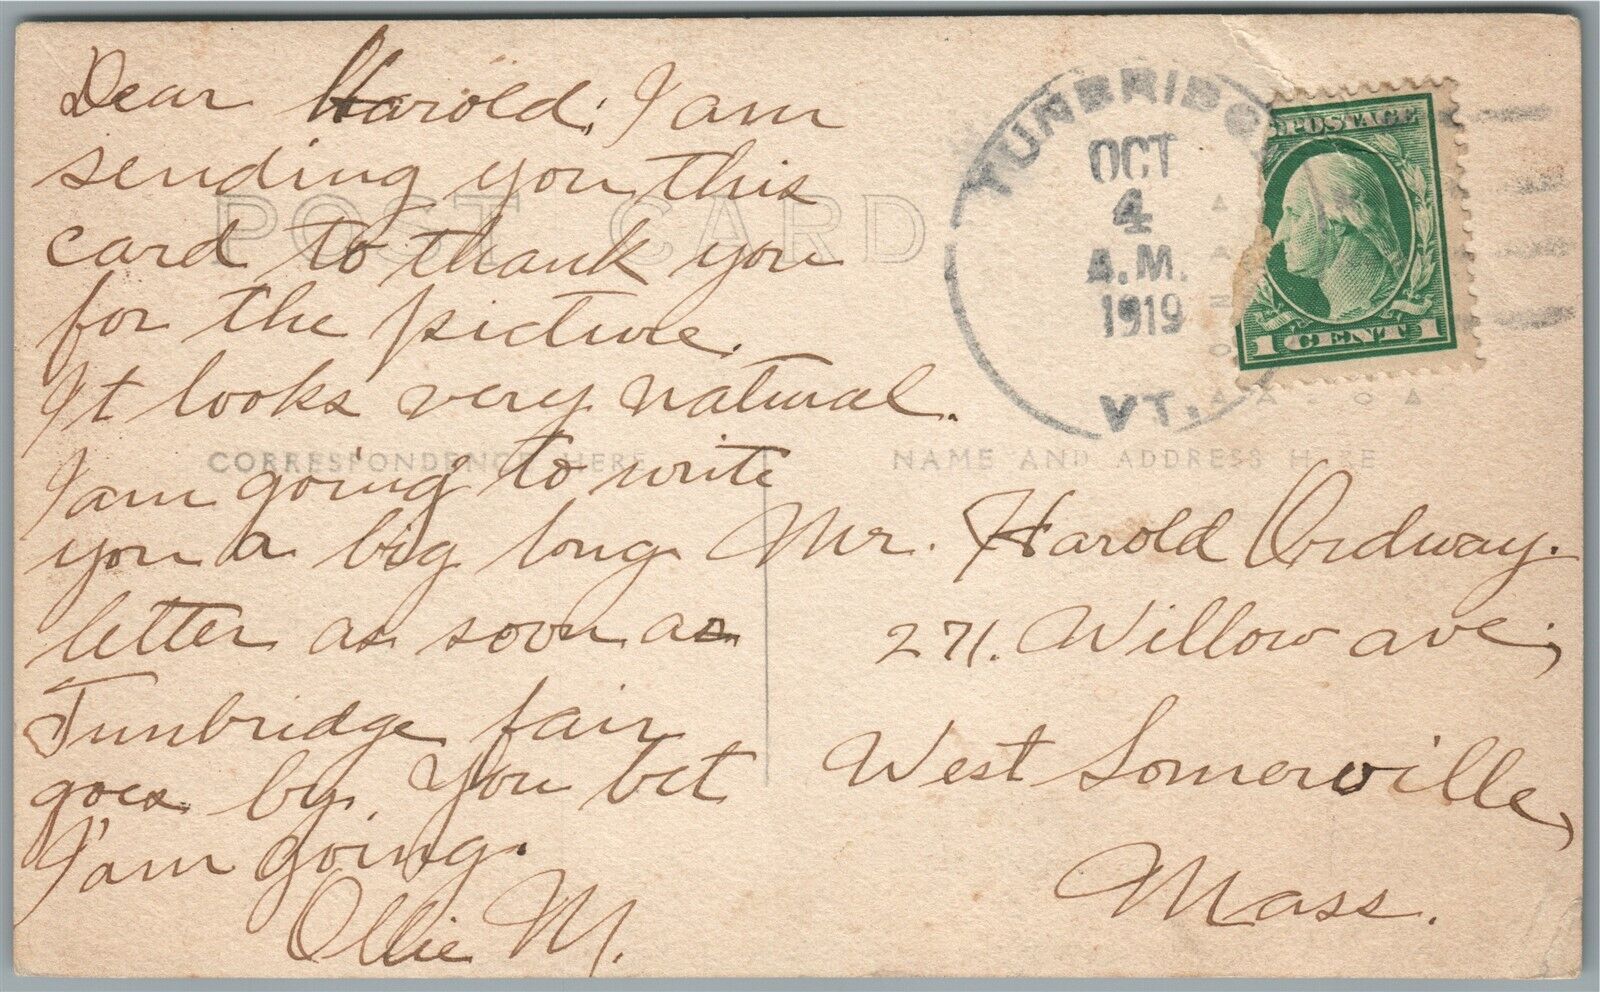 Dear Harold: I am
sending you this
card to thank you
for the picture.
It looks very natural.
I am going to write
you a big long
letter as soon as
Tunbridge fair
goes by. You bet
I'am going.
Ollie M.
POST CARD
CORRESPONDENCE HERE
NAME AND ADDRESS HERE
TUNBRIDGE
OCT
4
A.M.
1919
VT.
POSTAGE
1 CENT 1
Mr. Harold Ordway.
271. Willow ave;
West Somerville,
Mass.